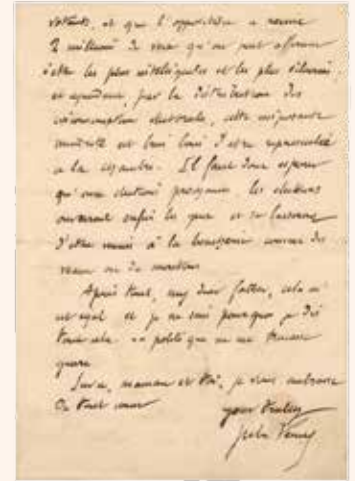 votants, et que l'opposition a réuni
2 millions de voix qu'on peut affirmer
être les plus intelligentes et les plus
et cependant, par la distribution des
circonscriptions électorales, cette imposante
minorité est loin d'être représentée
à la chambre. Il faut donc espérer
qu'aux élections prochaines les électeurs
ouvriront enfin les yeux et se lasseront
d'être menés à la comme des
veaux ou des moutons
Après tout, my dear father, cela m'
est égal et je ne sais pourquoi je dis
tout cela politique ne me tracasse
guère
maman et toi, je vous embrasse
de tout cœur
your
Jules Verne